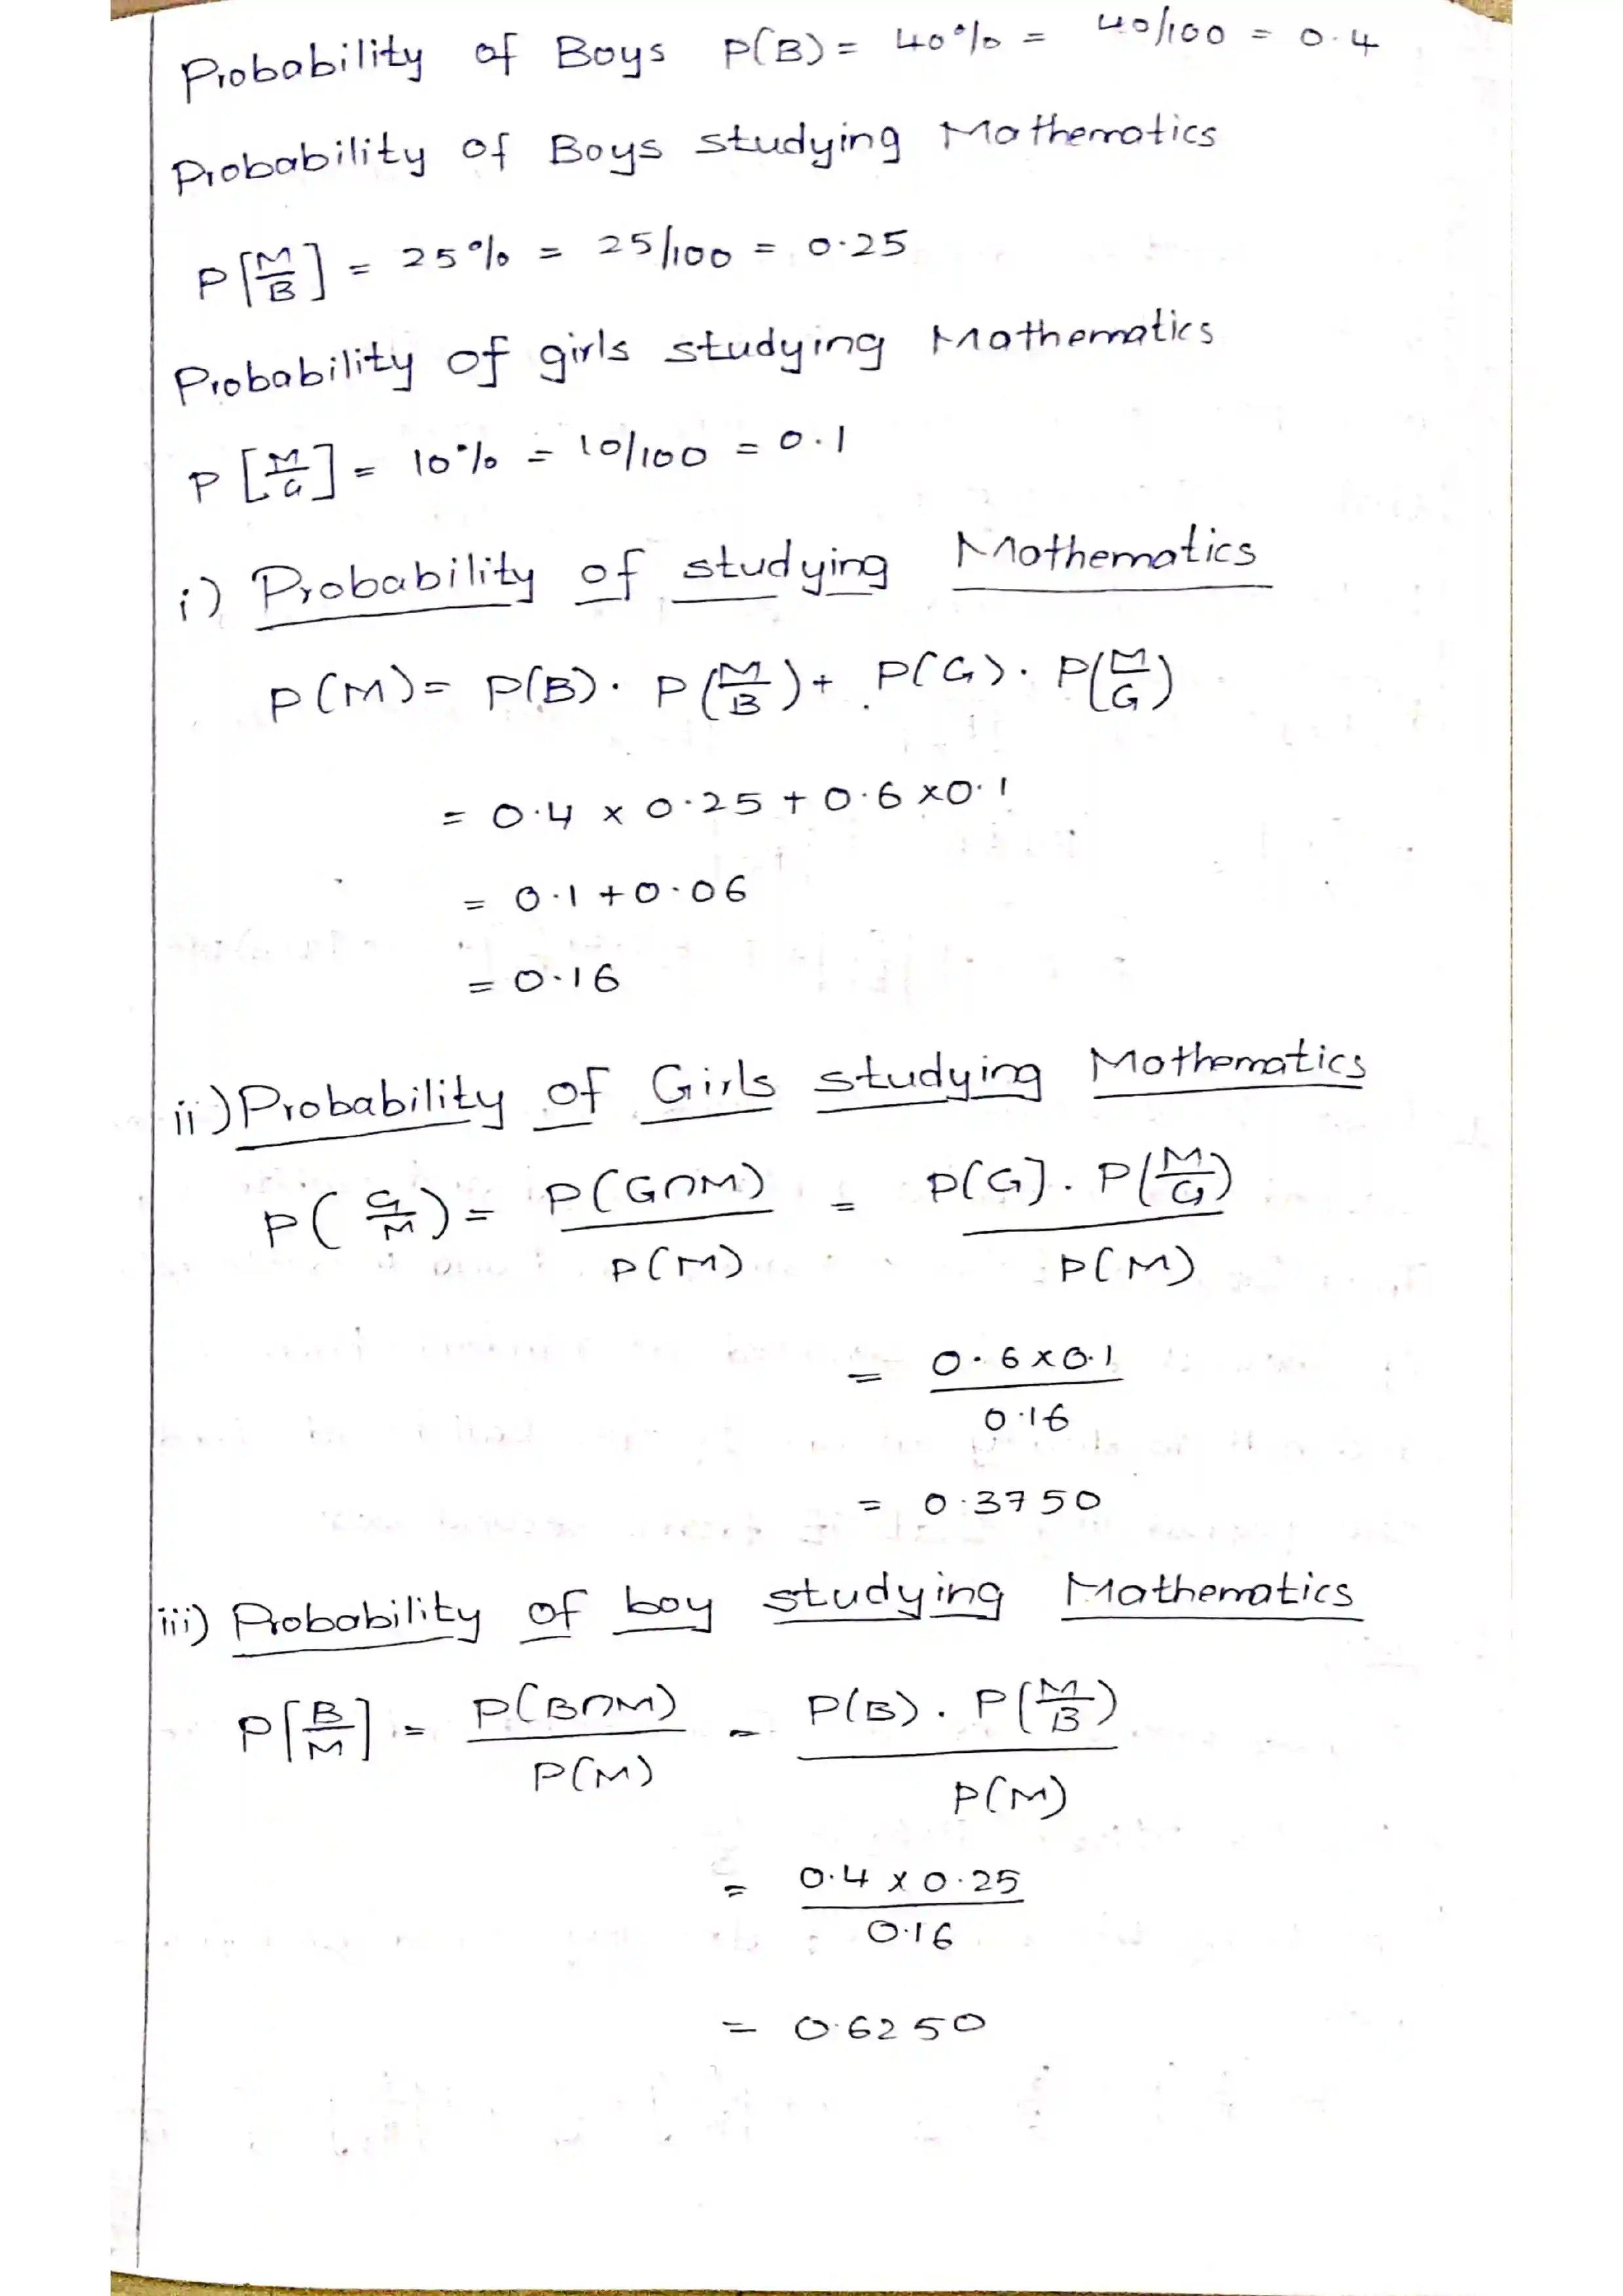 Probability of Boys P(B) = 40% = 40/100 = 0.4
Probability of Boys studying Mathematics
P[M/B] = 25% = 25/100 = 0.25
Probability of girls studying Mathematics
P[M/G] = 10% = 10/100 = 0.1
i) Probability of studying Mathematics
P(M) = P(B). P(M/B) + P(G). P(M/G)
= 0.4 x 0.25 + 0.6 x 0.1
= 0.1 + 0.06
= 0.16
ii) Probability of Girls studying Mathematics
P(G/M) = P(G∩M)/P(M) = P(G]. P(M/G)/P(M)
= 0.6 x 0.1/0.16
= 0.3750
iii) Probability of boy studying Mathematics
P[B/M] = P(B∩M)/P(M) = P(B). P(M/B)/P(M)
= 0.4 x 0.25/0.16
= 0.6250